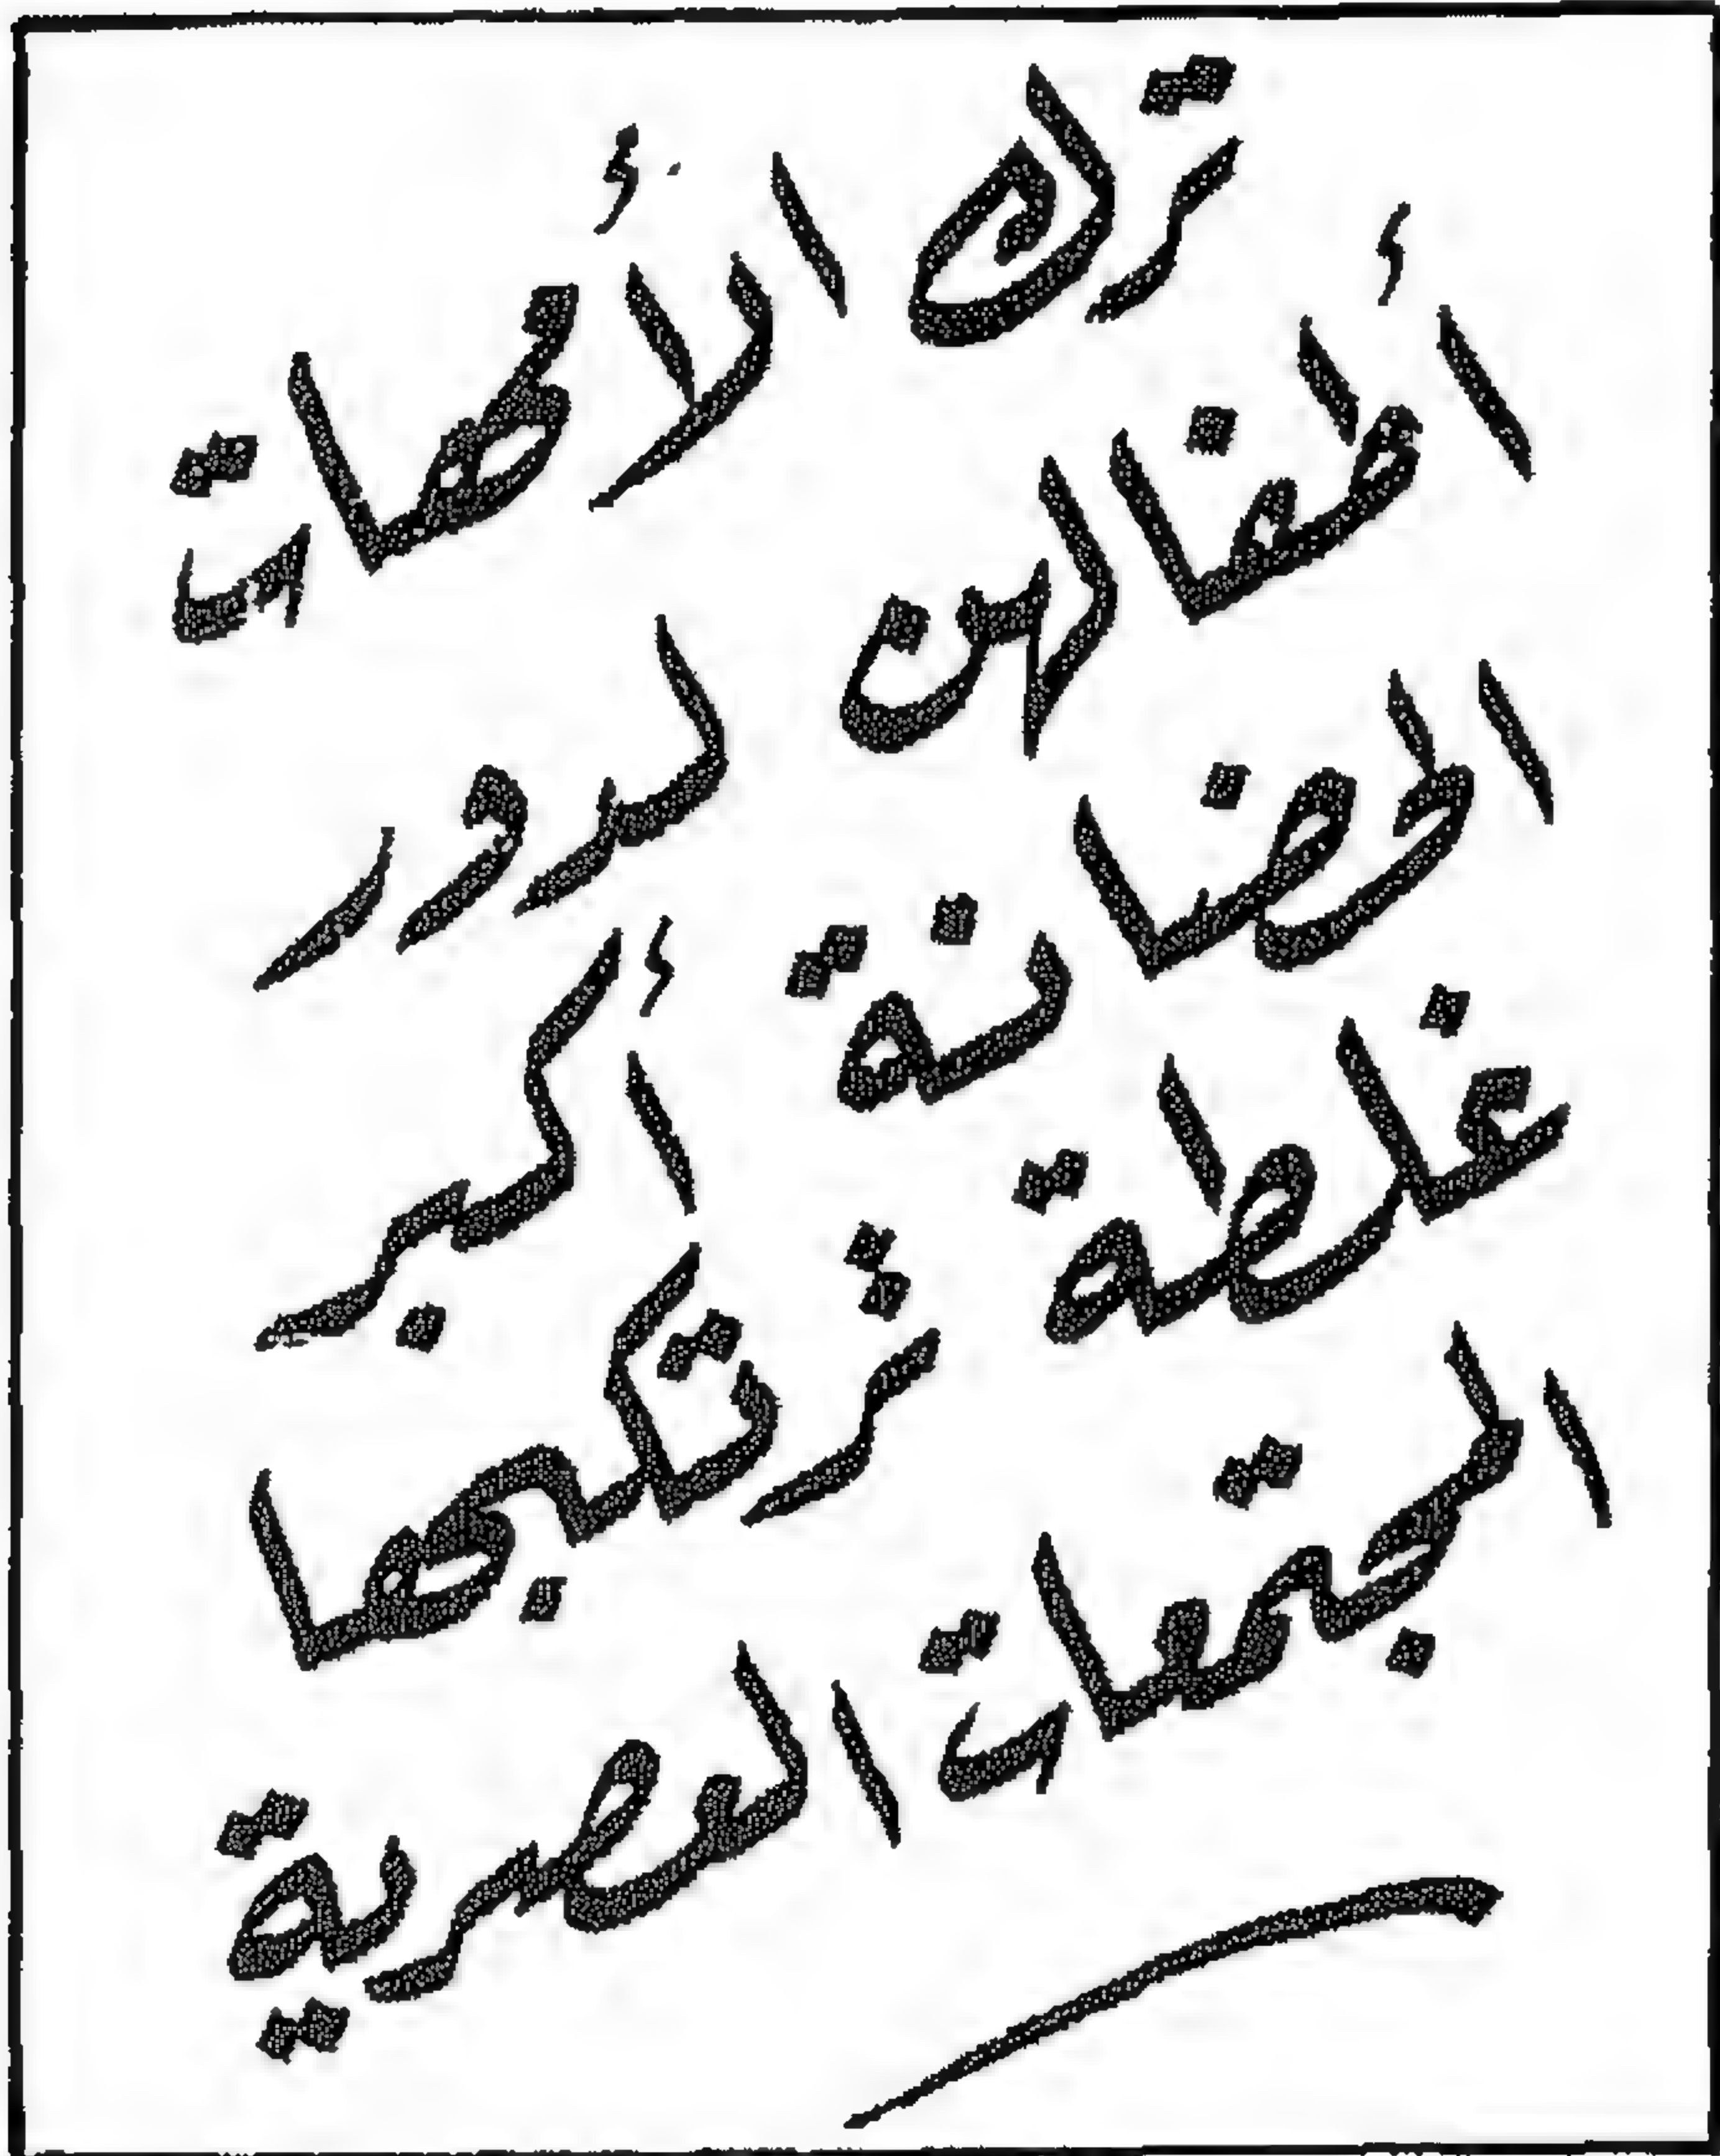 ترك الأمهات
أطفالهن لدور
الحضانة أكبر
غلطة ترتكبها
المجتمعات العصرية